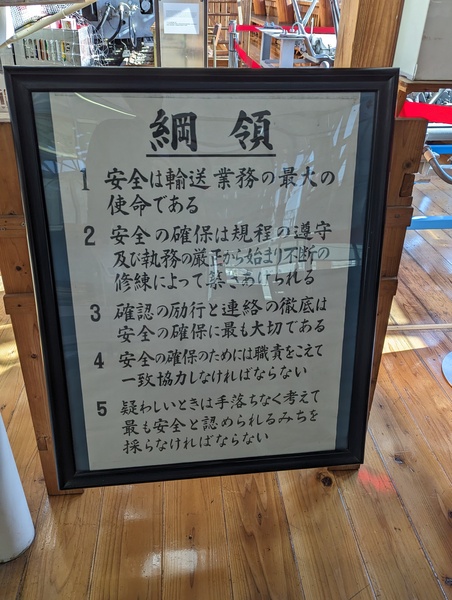 綱領
1 安全は輸送業務の最大の
使命である
2 安全の確保は規程の遵守
及び執務の厳正から始まり不断の
修練によって築きあげられる
3 確認の励行と連絡の徹底は
安全の確保に最も大切である
4 安全の確保のためには職責をこえて
一致協力しなければならない
5 疑わしいときは手落ちなく考えて
最も安全と認められるみちを
採らなければならない